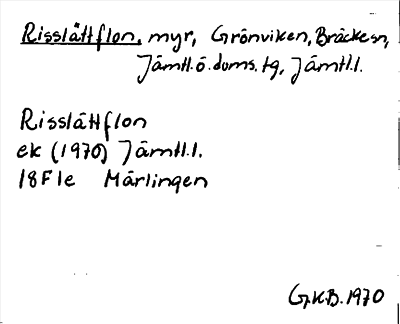 Risslättflon, myr, Grönviken, Bräcke sn,
Jämtl. ö. doms. tg, Jämtl.l.
Risslättflon
ek (1970) Jämtl.l.
18F1e Märlingen
G.K.B. 1970